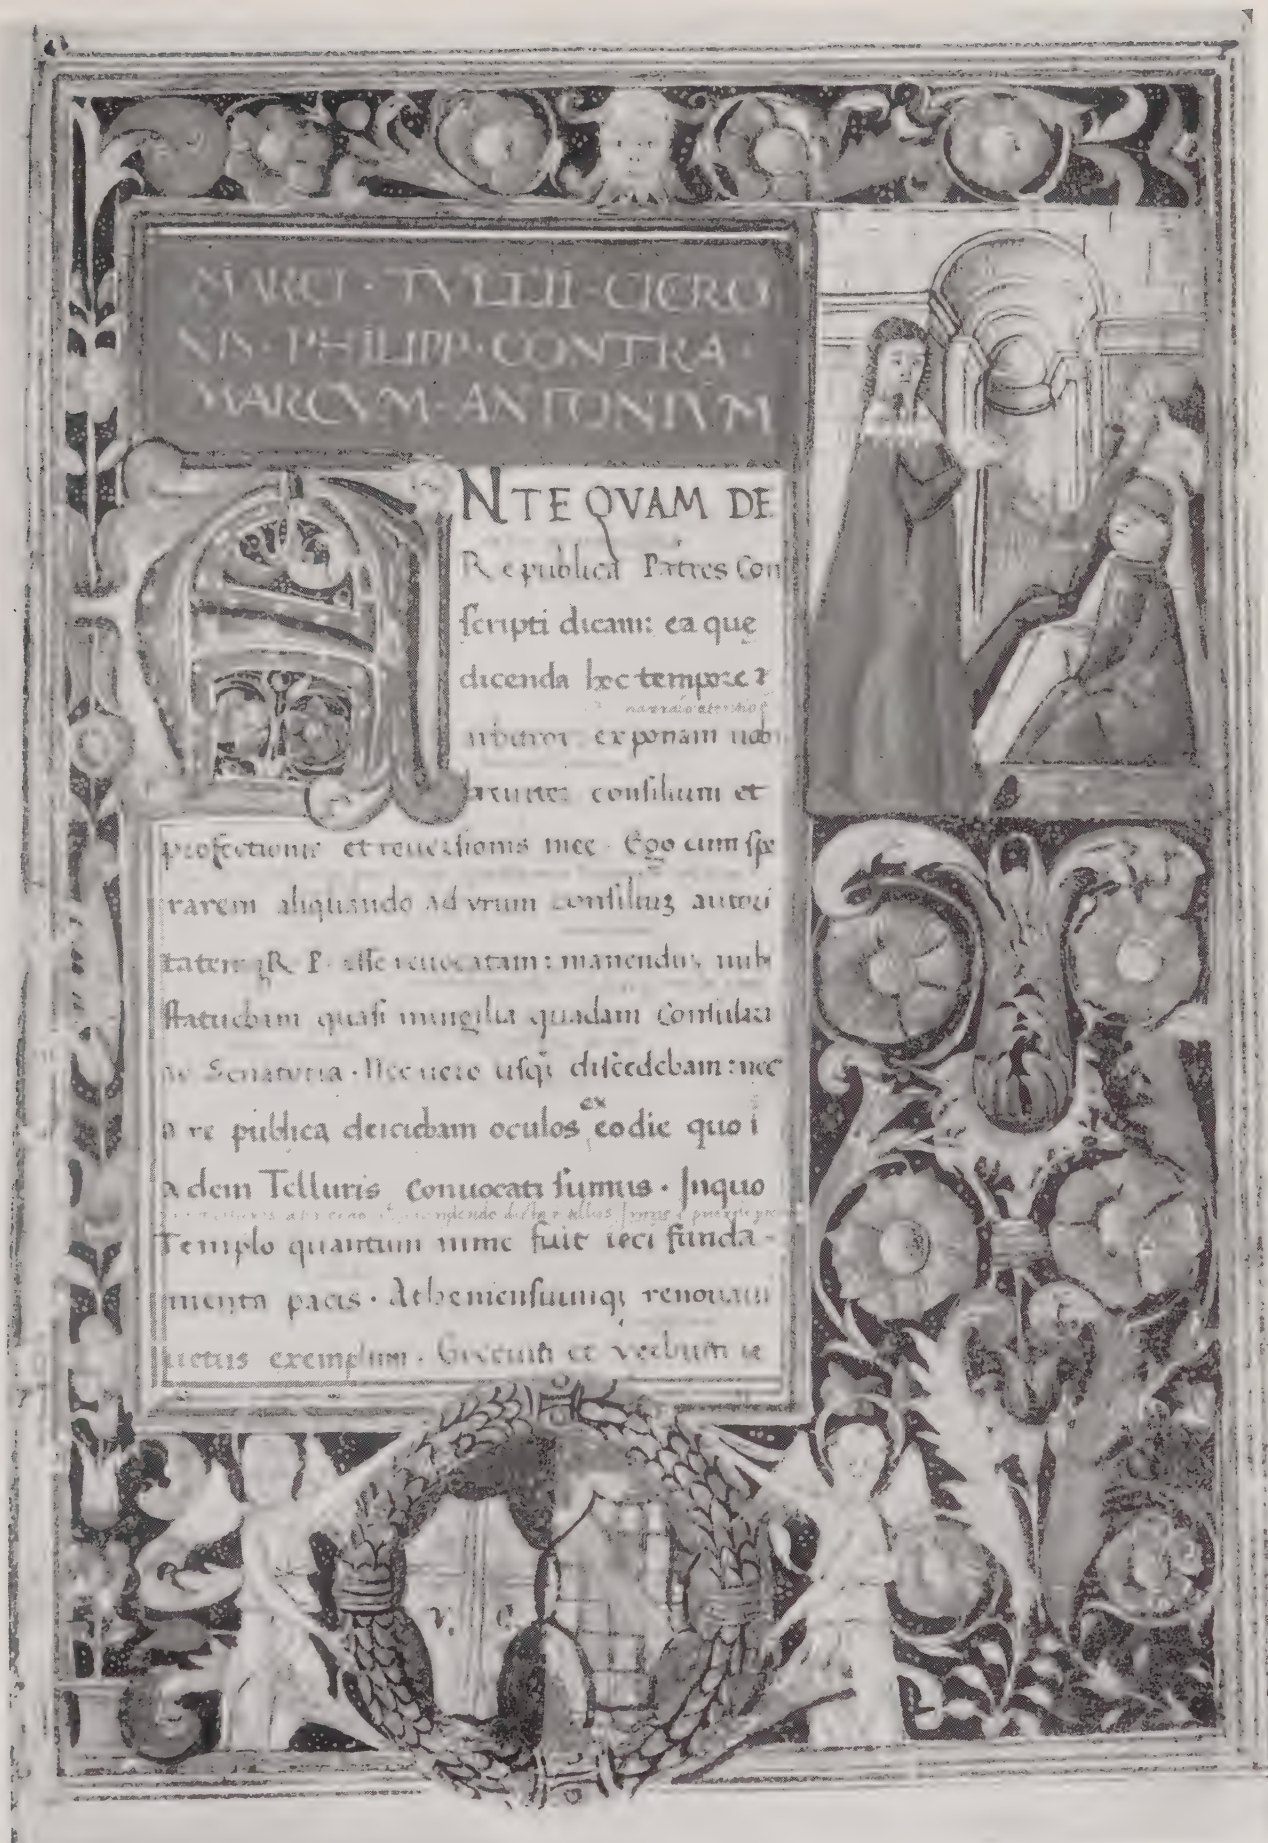 MARCI · TVLLII · CICERO
NIS · PHILIPP · CONTRA ·
MARCVM · ANTONIVM
ANTE QVAM DE
Republica Patres Con
scripti dicam: ea que
dicenda hoc tempore
arbitror: exponam uob
breuiter consilium et
profectionis et reuersionis mee · Ego cum spe
rarem aliquando ad vrum consiliuȝ autori
tatemqȝ R P esse reuocatam: manenduȝ mihi
statuebam quasi inuigilia quadam Consulari
ac Senatoria · Nec uero usqȝ discedebam: nec
a re publica deiciebam oculos ex eo die quo i
ædem Telluris conuocati sumus · Inquo
Templo quantum in me fuit ieci funda-
menta pacis · Atheniensiumqȝ renouaui
uetus exemplum · Grecum et verbum
V. C.